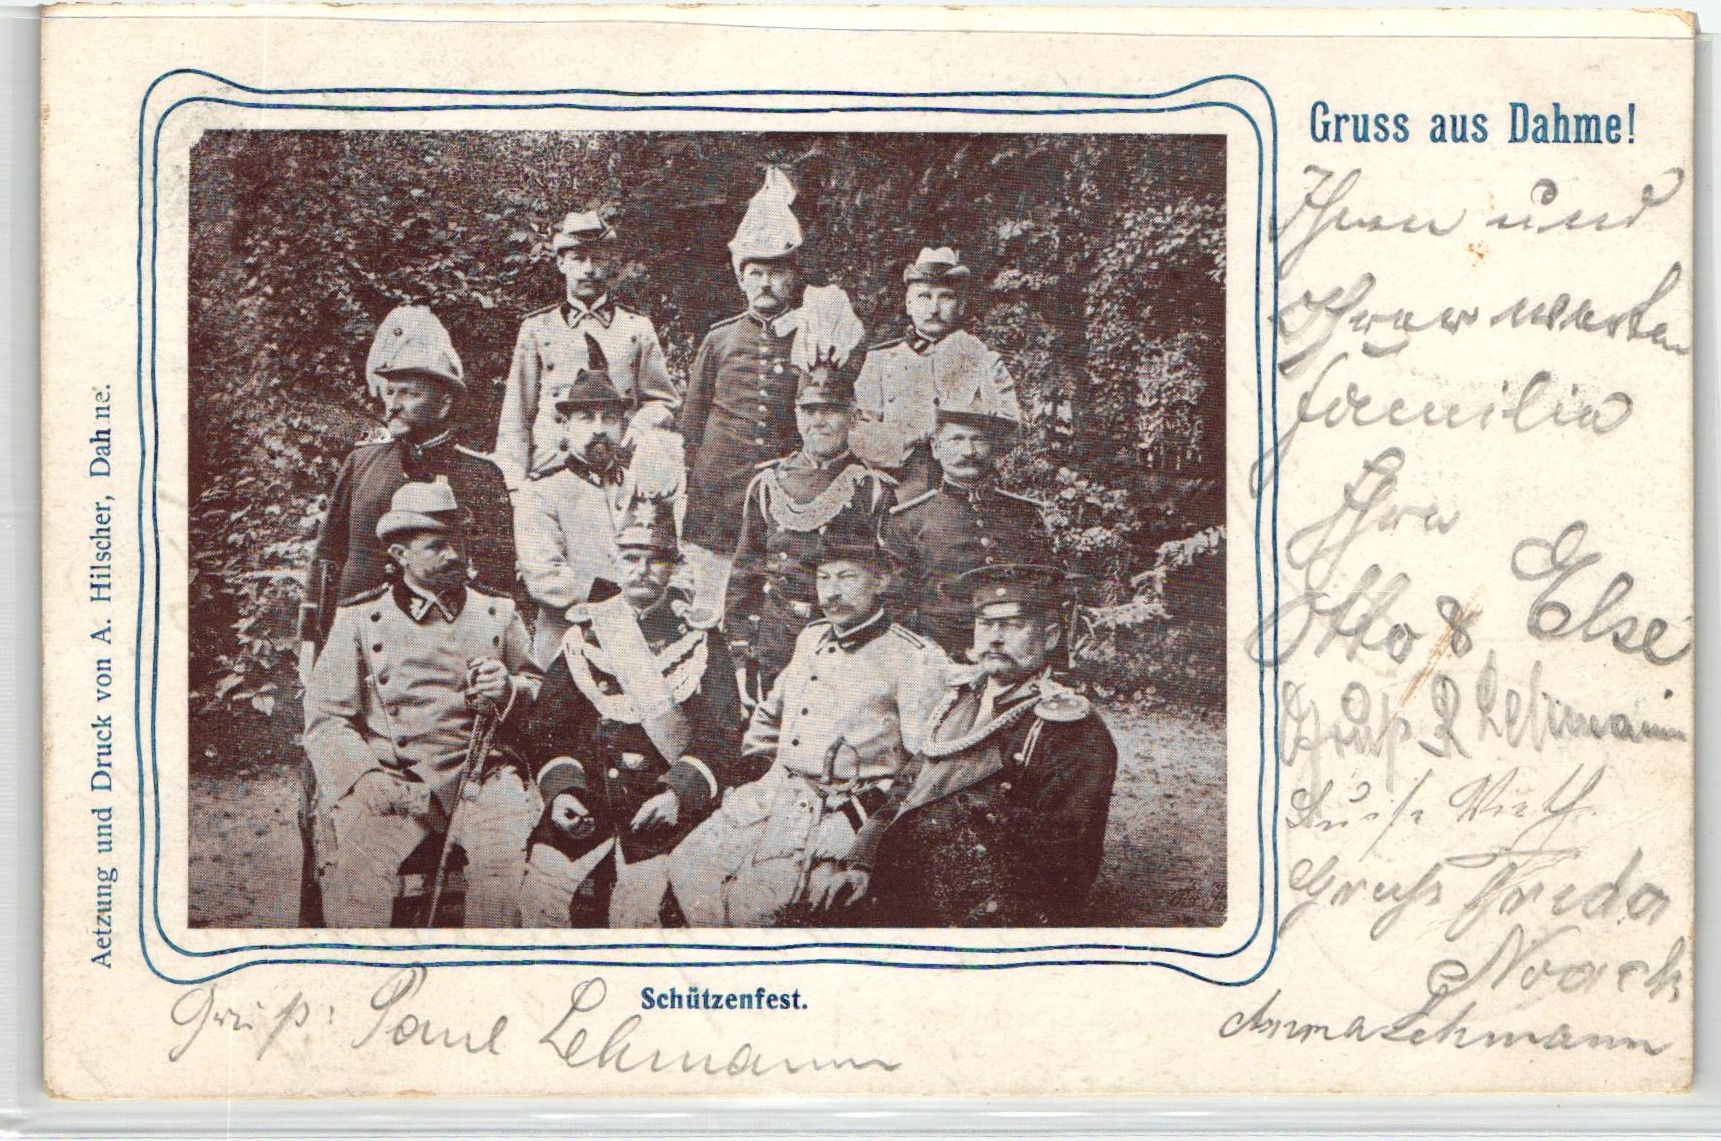 Gruss aus Dahme!
Ihnen und
Ihrer werten
Familie
Ihre
Otto & Else
Gruß R Lehmann
Gruß Frieda
Noack
Anna Lehmann
Schützenfest.
Gruß: Paul Lehmann
Aetzung und Druck von A. Hilscher, Dahme.